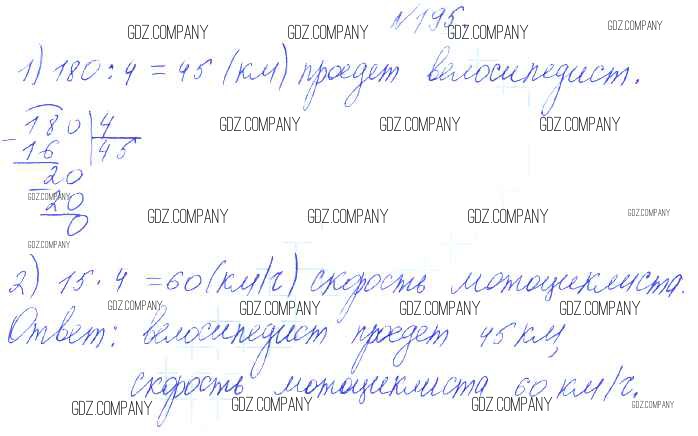 №195.
GDZ.COMPANY GDZ.COMPANY GDZ.COMPANY GDZ.COMPANY
1) 180 : 4 = 45 (км) проедет велосипедист.
180 | 4
GDZ.COMPANY GDZ.COMPANY GDZ.COMPANY
- 16 | 45
20
GDZ.COMPANY
- 20
GDZ.COMPANY GDZ.COMPANY GDZ.COMPANY GDZ.COMPANY
0
GDZ.COMPANY
2) 15 · 4 = 60 (км/г) скорость мотоциклиста.
GDZ.COMPANY GDZ.COMPANY GDZ.COMPANY GDZ.COMPANY
Ответ: велосипедист проедет 45 км,
скорость мотоциклиста 60 км/г.
GDZ.COMPANY GDZ.COMPANY GDZ.COMPANY GDZ.COMPANY